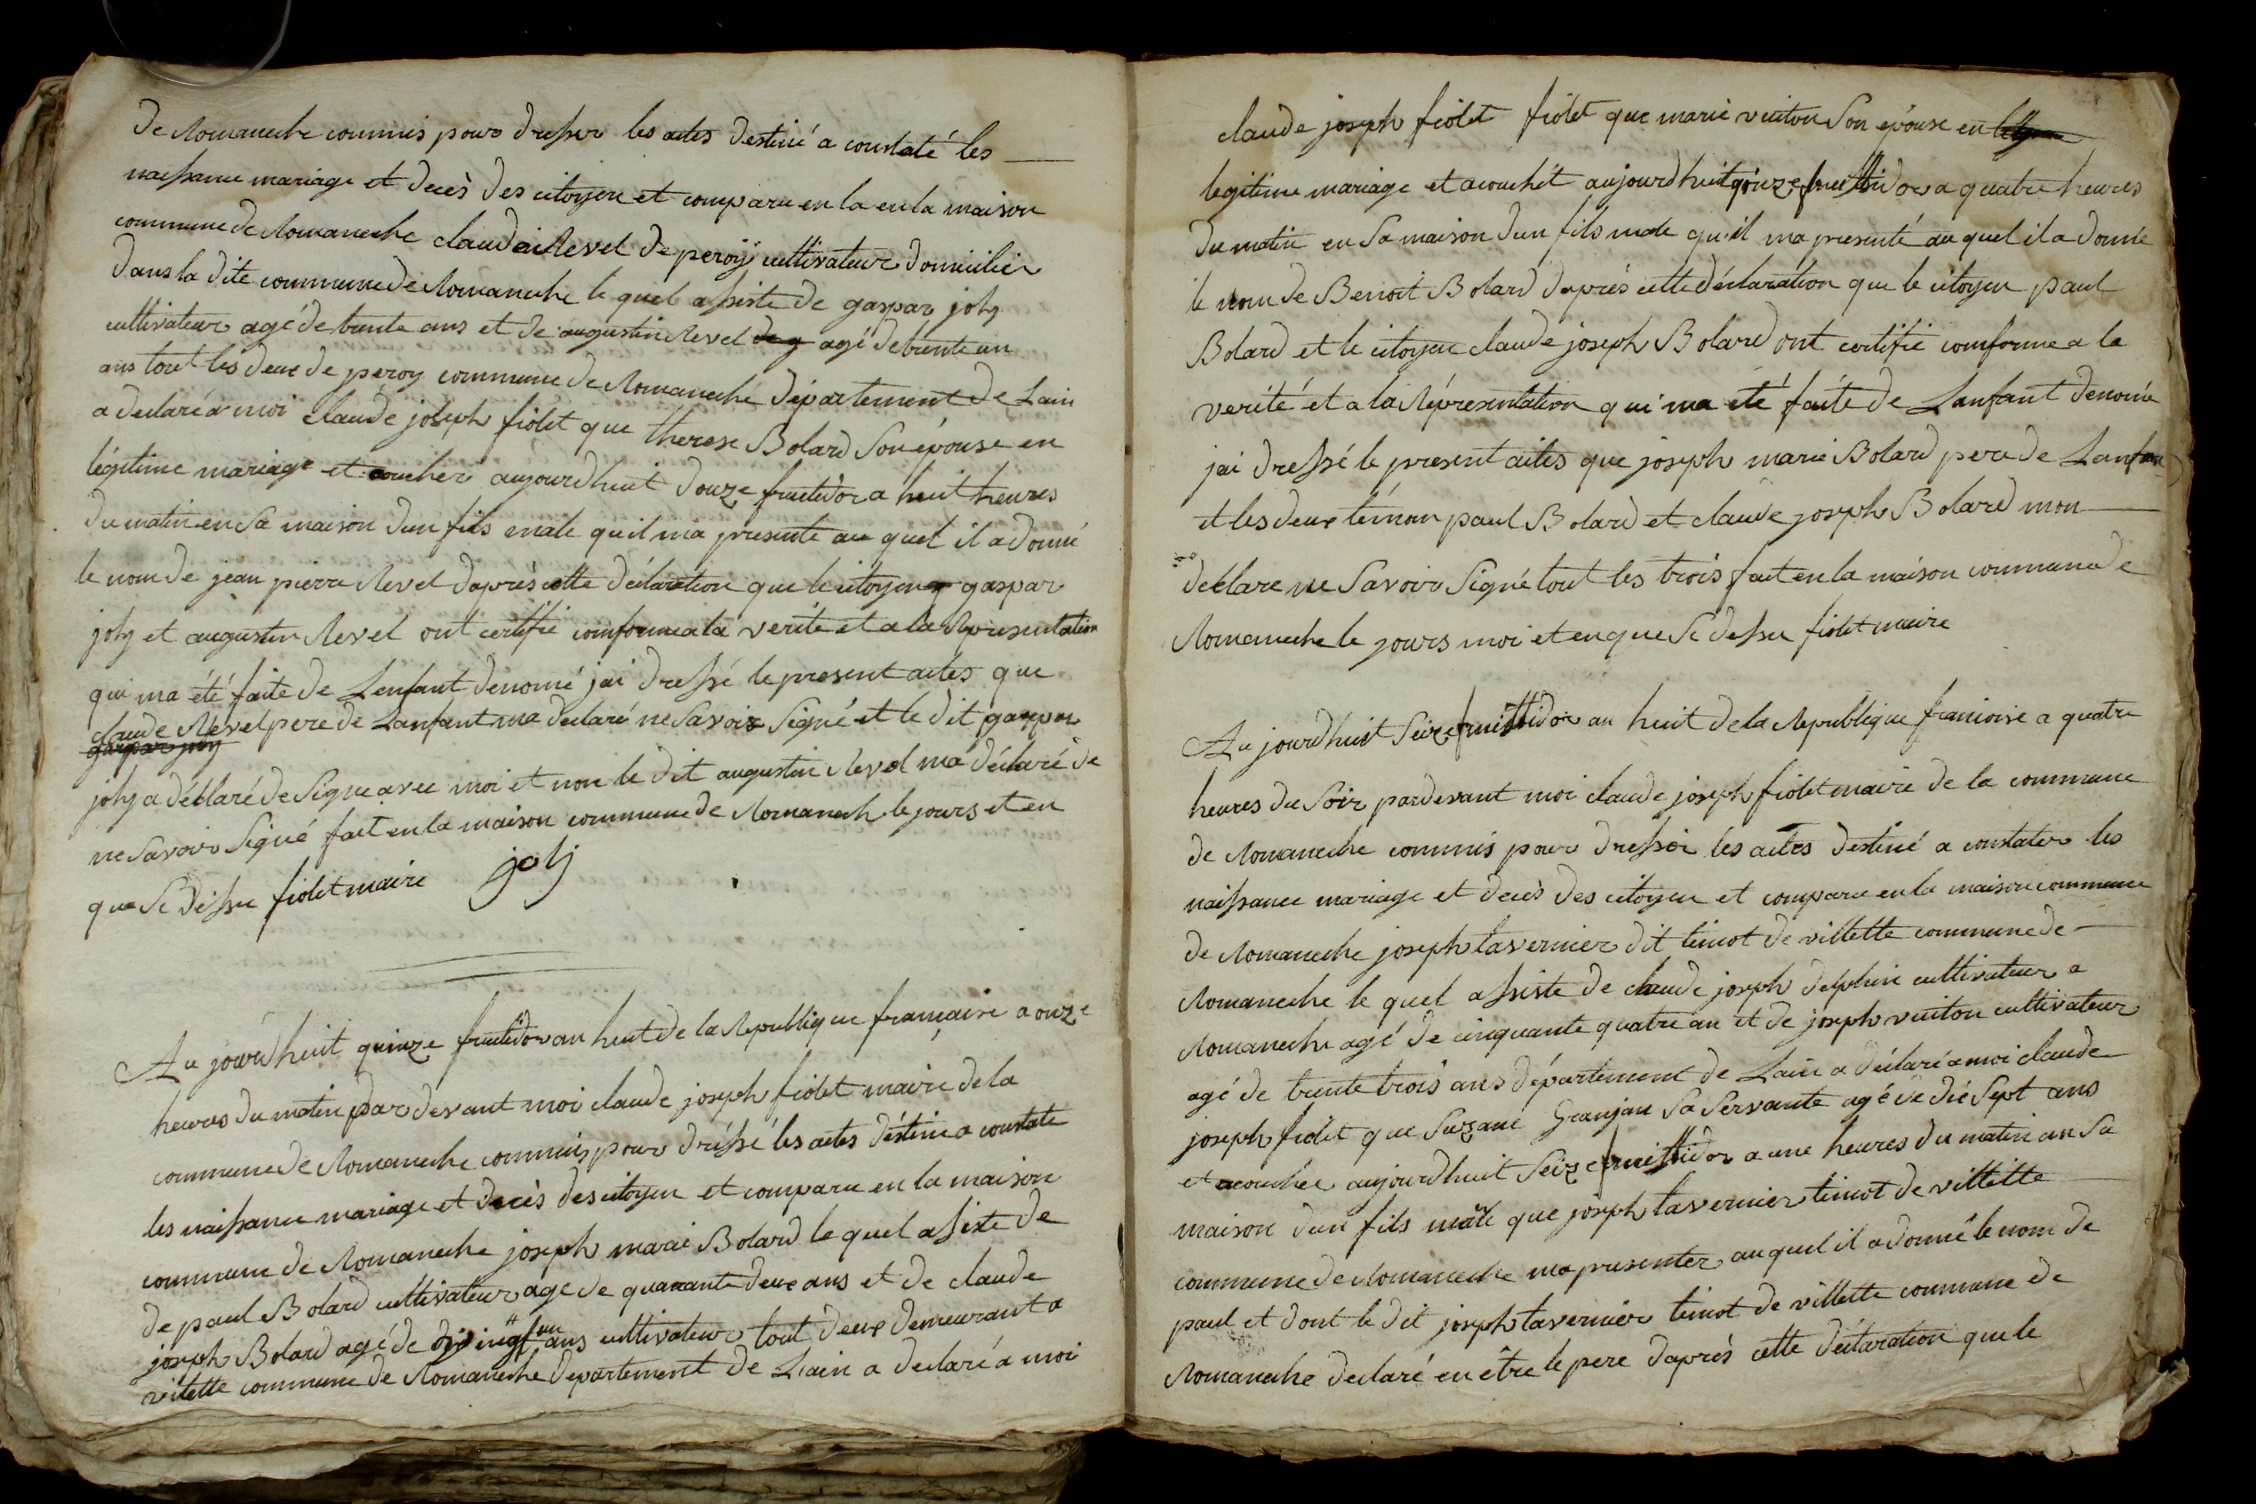 de Romaneche commis pour dresser les actes destiné a constaté les
naissance mariage et decès des citoyen et comparu en la en la maison
commune de Romaneche claudai Revel de peroy cultivateur domicilier
dans la dite commune de Romaneche le quel assiste de gaspar joly
cultivateur agé de trente ans et de augustin Revel de g agé de trente un
ans tout les deux de peroy commune de Romaneché département de Lain
a declaré a moi claude joseph fiolet que therese Bolard Son épouse en
légitime mariage et acoucher aujourdhuit douze fructidor a huit heures
du matin en Sa maison dun fils male quil ma presenté au quel il a donné
le nom de jean pierre Revel daprès cette déclaration que le citoyen gaspar
joly et augustin Revel ont certifié comforme a la verité et a la Representation
qui ma été faite de Lenfant denomé jai dressé le present actes que
claude Revel pere de Lanfant ma declaré ne Savoir Signé et le dit gaspar
gaspar joly
joly a déclaré de Signe avec moi et non le dit augustin Revel ma déclaré de
ne Savoir Signé fait en la maison commune de Romanech le jours et en
que Se dessu fiolet maire joly
Au jourdhuit quinze fructidor an huit de la Republique françaire a onze
heures du matin par devant moi claude joseph fiolet maire de la
commune de Romaneche commis pour dréssé les actes déstiné a constaté
les naissance mariage et decès des citoyen et comparu en la maison
commune de Romaneche joseph marie Bolard le quel asiste de
de paul Bolard cultivateur age de quarante deux ans et de claude
joseph Bolard agé de vingt un ans cultivateur tout deux demeurant a
vilette commune de Romaneche departement de Lain a declaré a moi
claude joseph fiolet fiolet que marie vuiton Son epouse en
legitime mariage et acouchét aujourdhuit quinze fructidor a quatre heures
du matin en Sa maison dun fils male qu'il ma presenté au quel il a donné
le nom de Benoit Bolard daprès cette déclaration que le citoyen paul
Bolard et le citoyen claude joseph Bolard ont certifié comforme a la
verité et a la Répresentation qui ma été faite de Lanfant denomé
jai dressé le present actes que joseph marie Bolard pere de Lanfant
et les deux témoin paul Bolard et claude joseph Bolard mon
declare ne Savoir Signé tout les trois fait en la maison commune de
Romaneche le jours moi et en que Se dessu fiolet maire
Au jourdhuit Seize fructidor an huit de la Republique francoise a quatre
heures du Soir pardevant moi claude joseph fiolet maire de la commune
de Romaneche commis pour dresser les actes destiné a constater les
naissance mariage et decès des citoyen et comparu en la maison commune
de Romaneche joseph tavernier dit timot de villette commune de
Romaneche le quel assiste de claude joseph delphin cultivateur a
Romaneche agé de cinquante quatre an et de joseph vuiton cultivateur
agé de trente trois ans département de Lain a déclaré a moi claude
joseph fiolet que Suzane Granjan Sa Servante agé de dié Sept ans
et acouchee aujourdhuit Seize fructidor a une heures du matin an Sa
maison dun fils mâle que joseph tavernier timot de villette
commune de Romaneche ma presenter auquel il a donné le nom de
paul et dont le dit joseph tavernier timot de villette commune de
Romaneche declaré en être le pere daprès cette déclaration que le